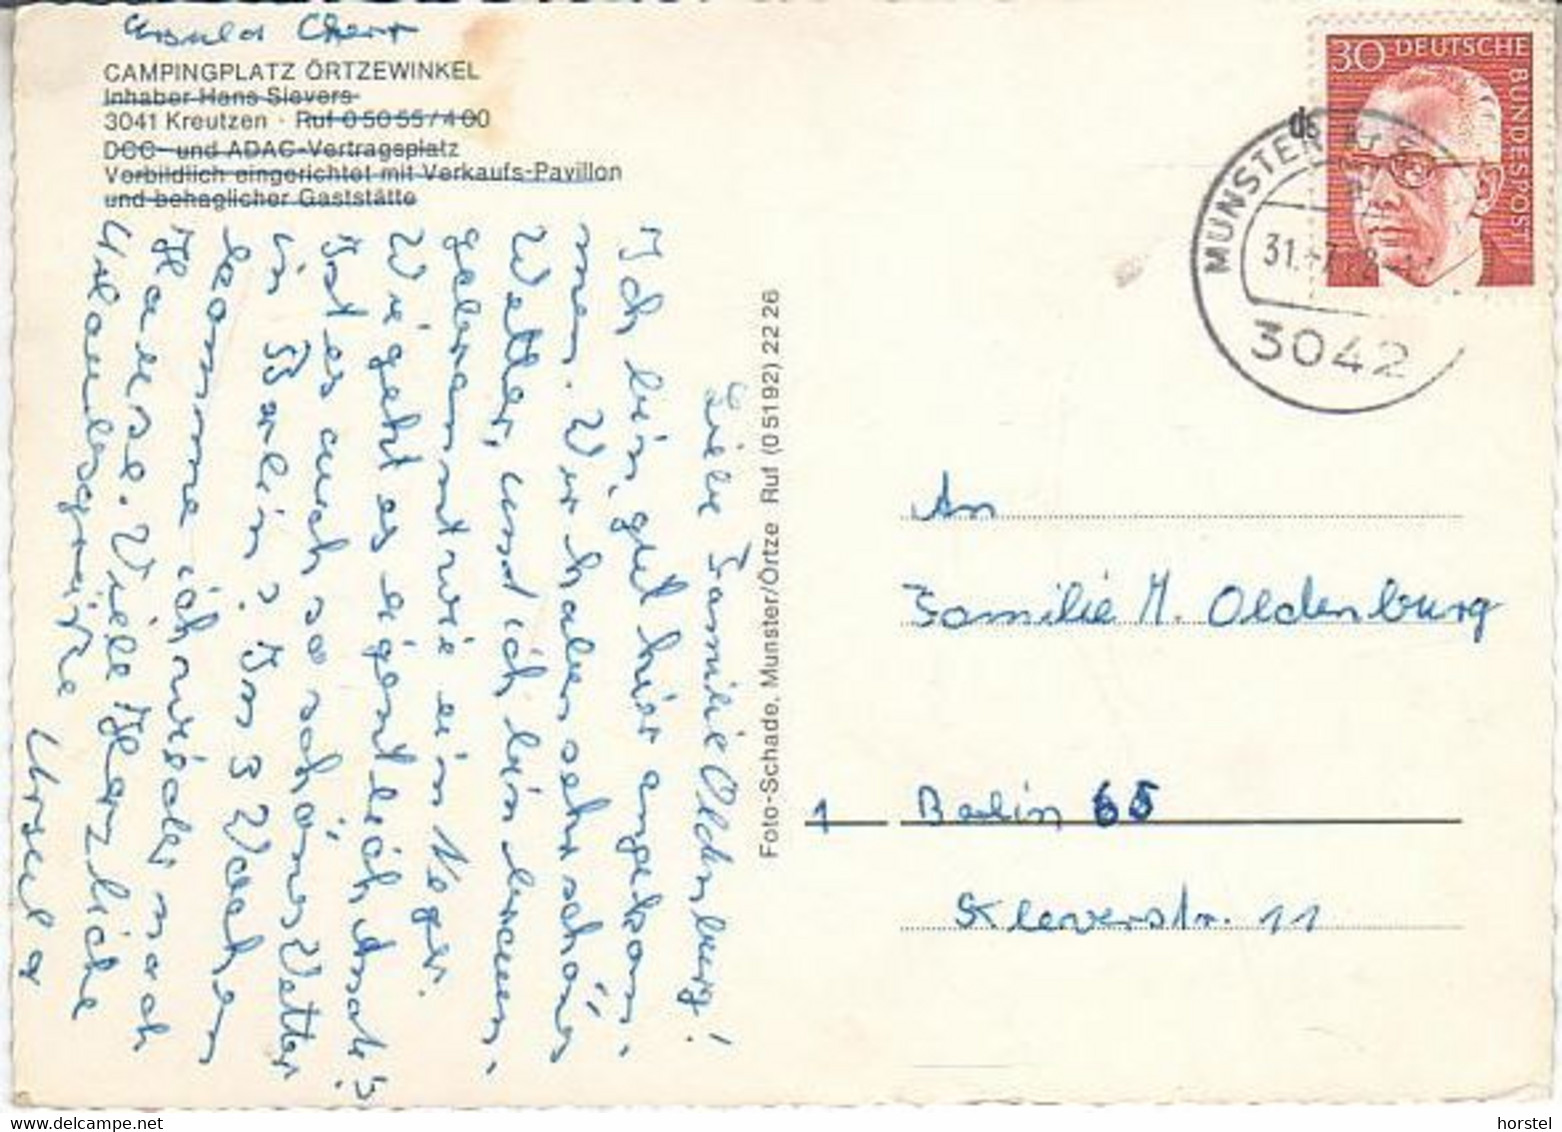 Ursula
CAMPINGPLATZ ÖRTZEWINKEL
Inhaber Hans Sievers
3041 Kreutzen · Ruf 0 50 55 / 4 00
DCC- und ADAC-Vertragsplatz
Vorbildlich eingerichtet mit Verkaufs-Pavillon
und behaglicher Gaststätte
Liebe Familie Oldenburg!
Ich bin gut hier angekom-
men. Wir haben sehr schönes
Wetter, und ich bin braun-
gebrannt wie ein Neger.
Wie geht es eigentlich Ihnen?
Ist es auch so schönes Wetter
in Berlin? In 3 Wochen
komme ich wieder nach
Hause. Viele Herzliche
Urlaubsgrüße
Ursula
Foto-Schade, Munster/Örtze Ruf (0 51 92) 22 26
30 DEUTSCHE
BUNDESPOST
MUNSTER
31.-7.
3042
An
Familie M. Oldenburg
1 Berlin 65
Kleverstr. 11
horstel